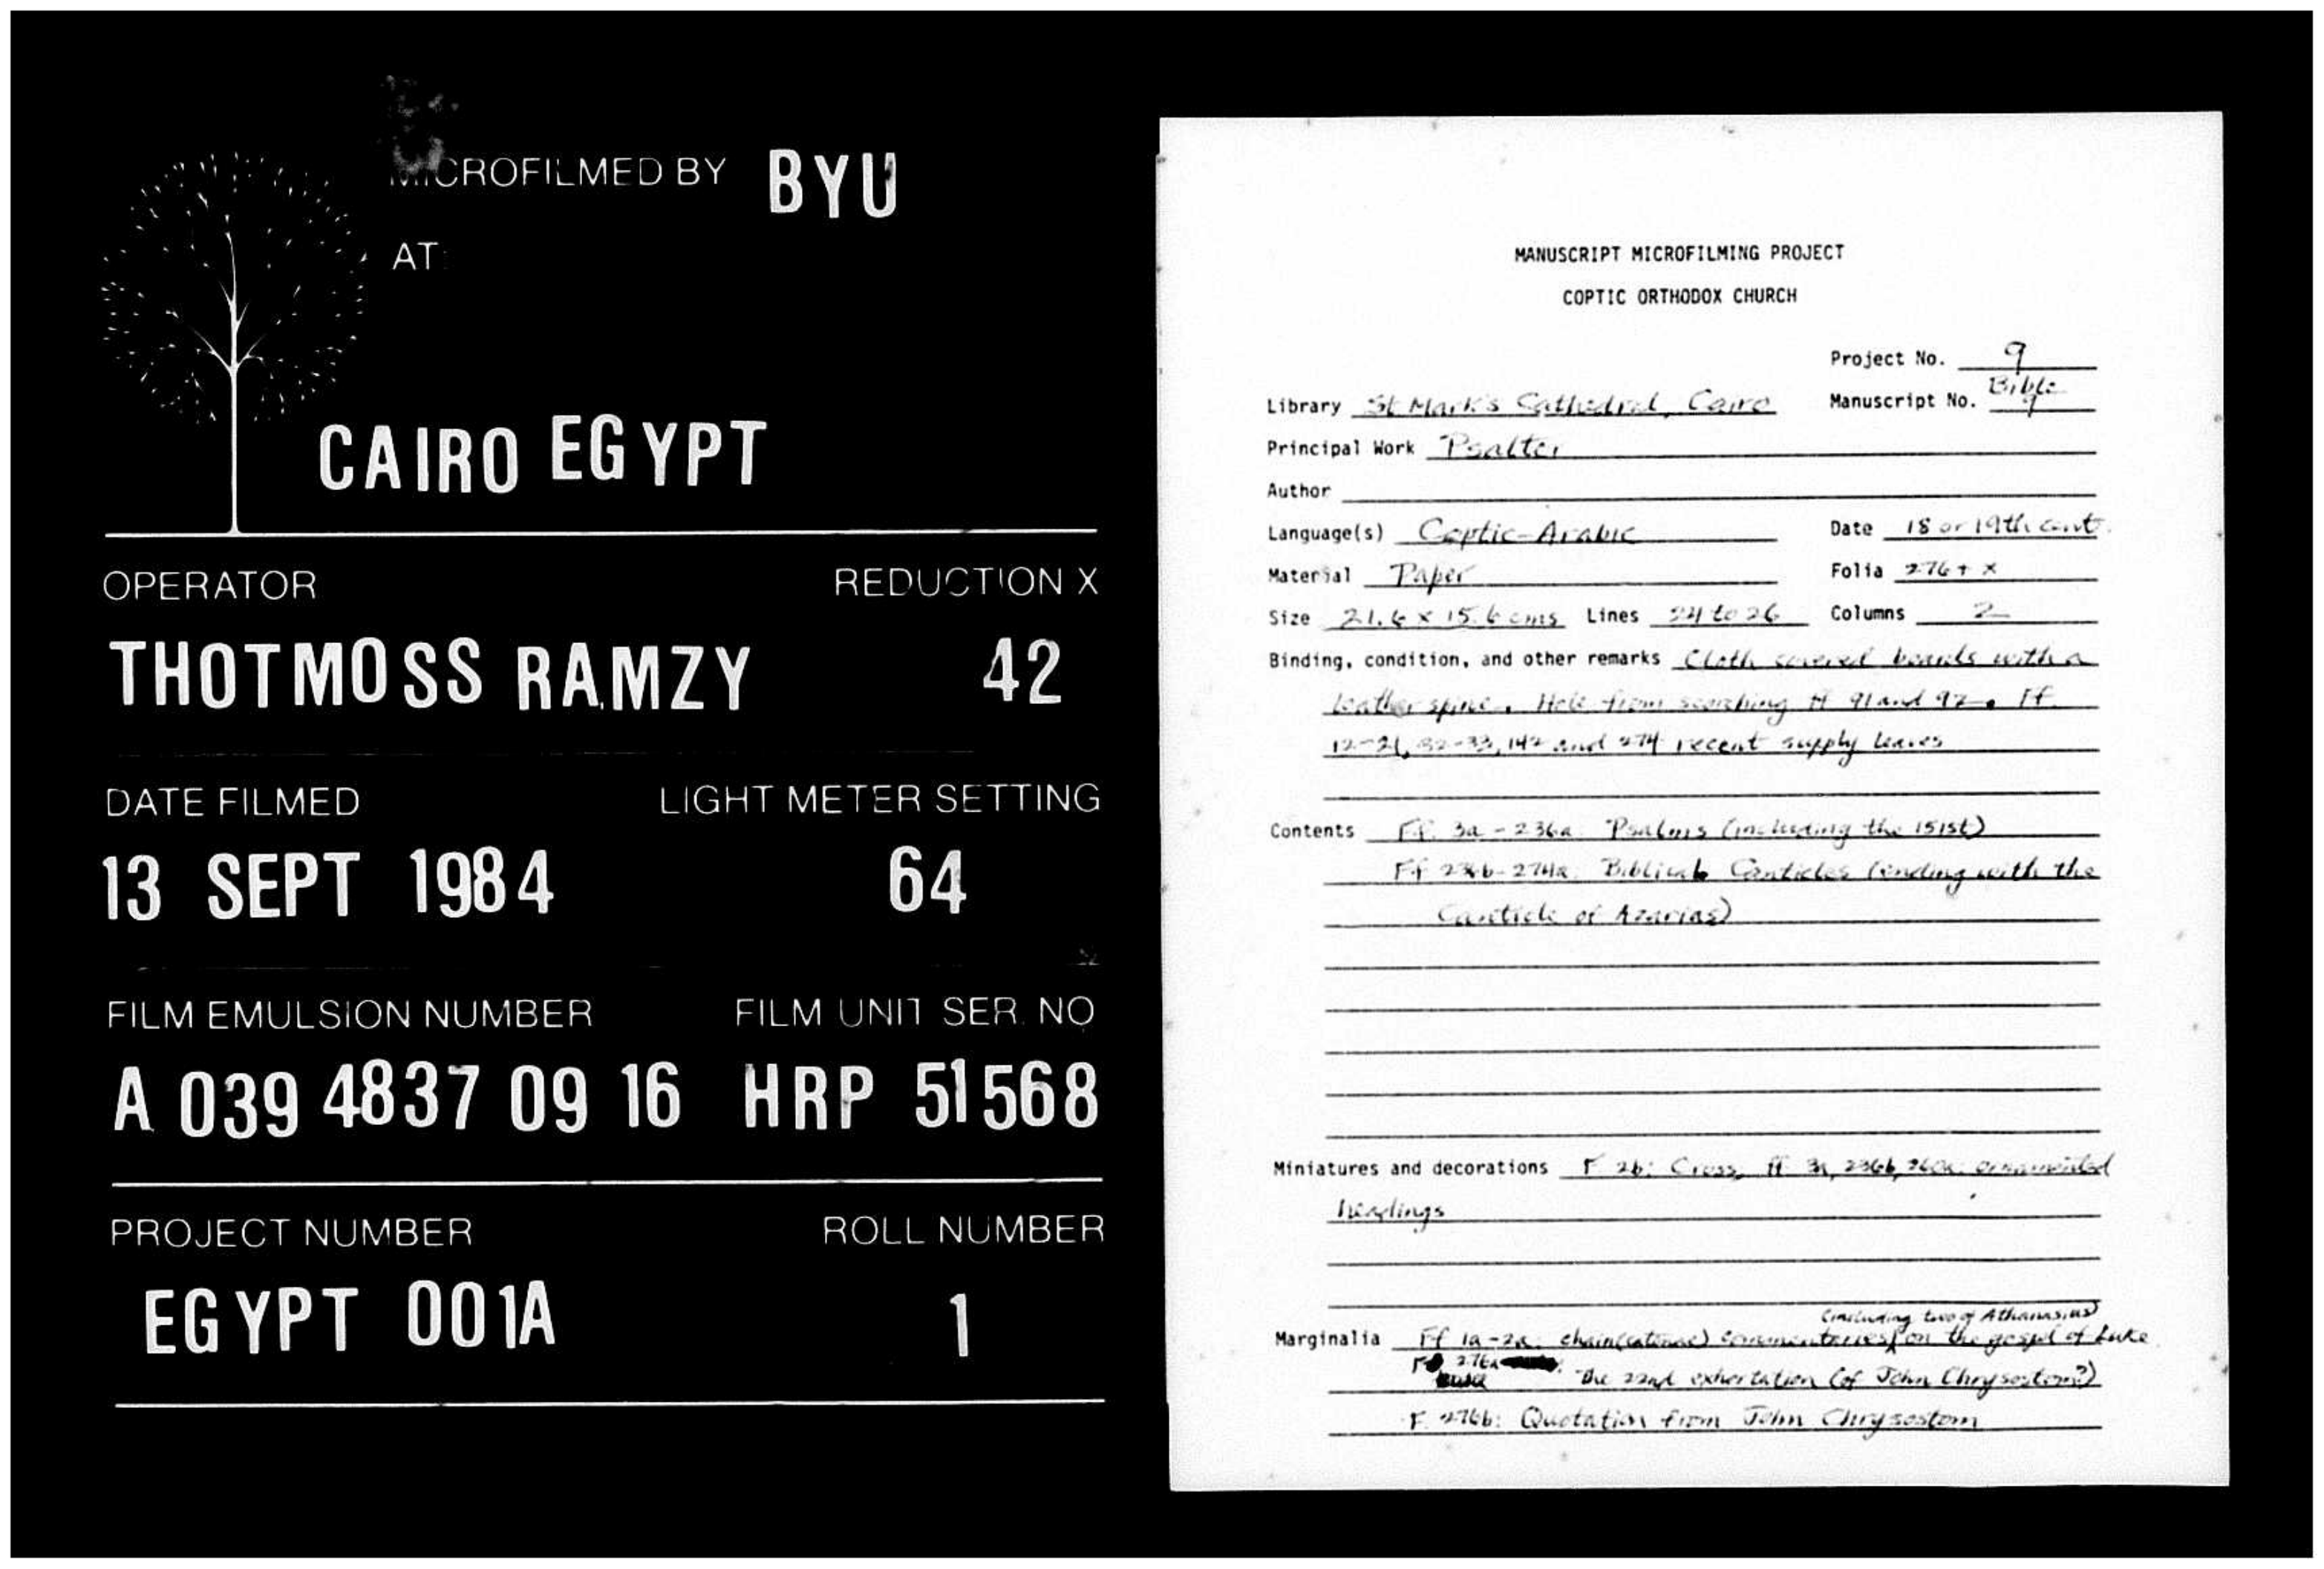 MICROFILMED BY BYU
AT:
CAIRO EGYPT
OPERATOR REDUCTION X
THOTMOSS RAMZY 42
DATE FILMED LIGHT METER SETTING
13 SEPT 1984 64
FILM EMULSION NUMBER FILM UNIT SER. NO
A 039 4837 09 16 HRP 51568
PROJECT NUMBER ROLL NUMBER
EGYPT 001A 1
MANUSCRIPT MICROFILMING PROJECT
COPTIC ORTHODOX CHURCH
Project No. 9
Library St Mark's Cathedral, Cairo Manuscript No. Bible 9
Principal Work Psalter
Author
Language(s) Coptic-Arabic Date 18 or 19th cent.
Material Paper Folia 276 + x
Size 21.6 x 15.6 cms Lines 24 to 26 Columns 2
Binding, condition, and other remarks Cloth covered boards with a
leather spine. Hole from scorching ff 91 and 92. Ff.
12-21, 32-33, 142 and 274 recent supply leaves
Contents Ff. 3a - 236a: Psalms (including the 151st)
Ff 236b-274a: Biblical Canticles (ending with the
Canticle of Azarias)
Miniatures and decorations F 2b: Cross, ff 3a, 236b, ornamented
headings
(including two of Athanasius)
Marginalia Ff 1a-2a: chain (catenae) commentaries on the gospel of Luke
F 276a: The 22nd exhortation (of John Chrysostom?)
F. 276b: Quotation from John Chrysostom